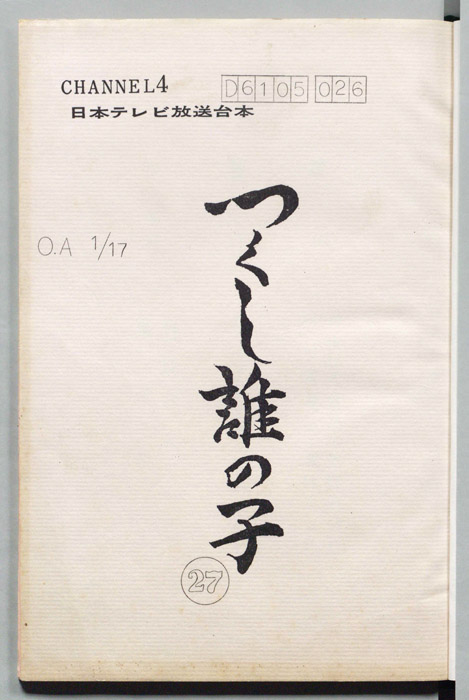 CHANNEL4
D6105 026
日本テレビ放送台本
O.A 1/17
つくし誰の子
27